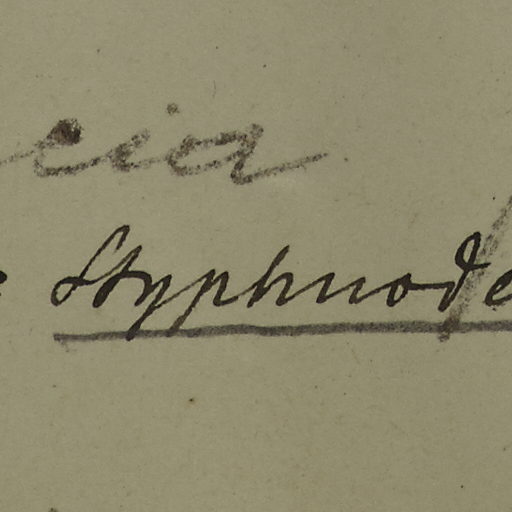 cia
Styphnode